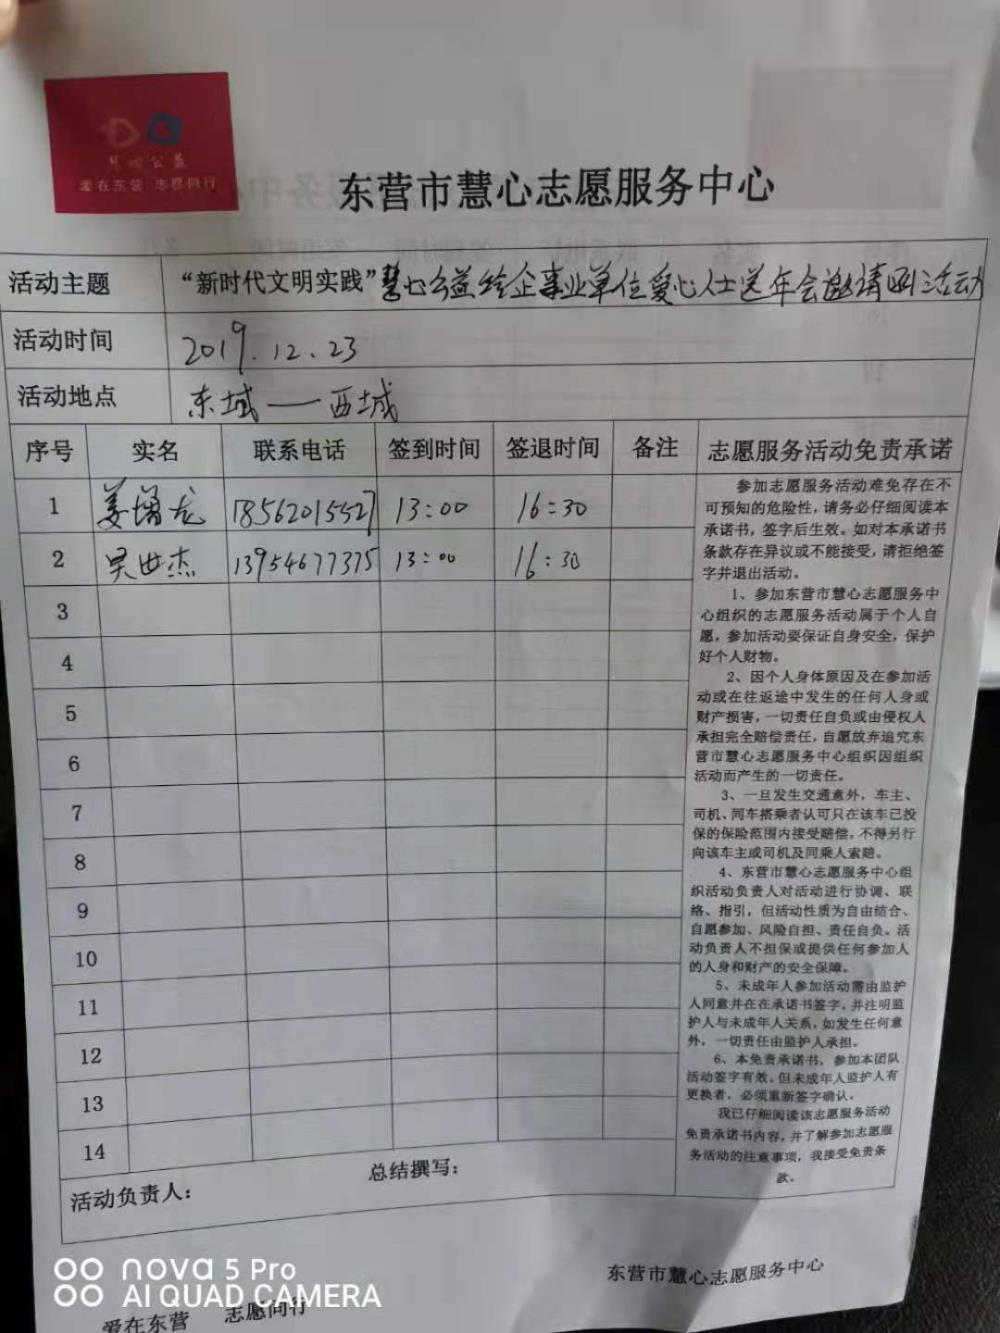 慧心公益
爱在东营 志愿同行
东营市慧心志愿服务中心
活动主题 “新时代文明实践”慧心公益给企事业单位爱心人士送年会邀请函活动
活动时间 2019.12.23
活动地点 东城——西城
序号 实名 联系电话 签到时间 签退时间 备注 志愿服务活动免责承诺
1 姜增龙 18562015527 13:00 16:30
2 吴世杰 13954677375 13:00 16:30
3
4
5
6
7
8
9
10
11
12
13
14
参加志愿服务活动难免存在不
可预知的危险性，请务必仔细阅读本
承诺书，签字后生效。如对本承诺书
条款存在异议或不能接受，请拒绝签
字并退出活动。
1、参加东营市慧心志愿服务中
心组织的志愿服务活动属于个人自
愿，参加活动要保证自身安全，保护
好个人财物。
2、因个人身体原因及在参加活
动或在往返途中发生的任何人身或
财产损害，一切责任自负或由侵权人
承担完全赔偿责任，自愿放弃追究东
营市慧心志愿服务中心组织因组织
活动而产生的一切责任。
3、一旦发生交通意外，车主、
司机、同车搭乘者认可只在该车已投
保的保险范围内接受赔偿，不得另行
向该车主或司机及同乘人索赔。
4、东营市慧心志愿服务中心组
织活动负责人对活动进行协调、联
络、指引，但活动性质为自由结合、
自愿参加、风险自担、责任自负。活
动负责人不担保或提供任何参加人
的人身和财产的安全保障。
5、未成年人参加活动需由监护
人同意并在在承诺书签字，并注明监
护人与未成年人关系，如发生任何意
外，一切责任由监护人承担。
6、本免责承诺书，参加本团队
活动签字有效。但未成年人监护人有
更换者，必须重新签字确认。
我已仔细阅读该志愿服务活动
免责承诺书内容，并了解参加志愿服
务活动的注意事项，我接受免责条
款。
活动负责人： 总结撰写：
东营市慧心志愿服务中心
爱在东营 志愿同行
nova 5 Pro
AI QUAD CAMERA